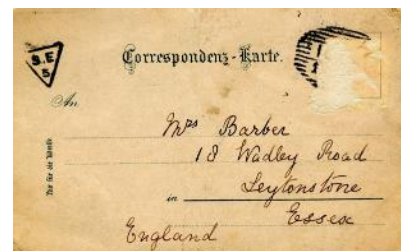 S.E
5
Correspondenz-Karte.
An
Mrs Barber
18 Wadley Road
in Leytonstone
Essex
England
Nur für die Adresse